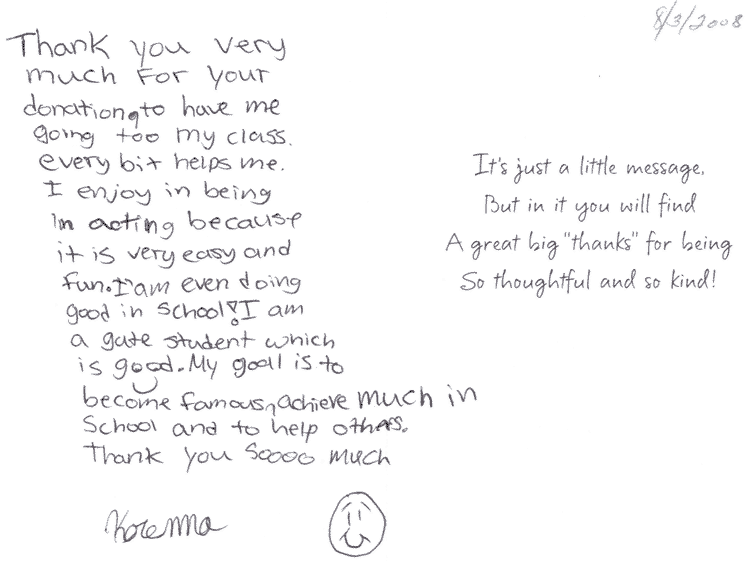 8/3/2008
Thank you very
much For your
donation, to have me
going too my class.
every bit helps me.
I enjoy in being
In acting because
it is very easy and
fun. I'am even doing
good in school! I am
a gate student which
is good. My goall is to
become famous, achieve much in
School and to help others.
Thank you Soooo much
Korenna
It's just a little message,
But in it you will find
A great big "thanks" for being
So thoughtful and so kind!